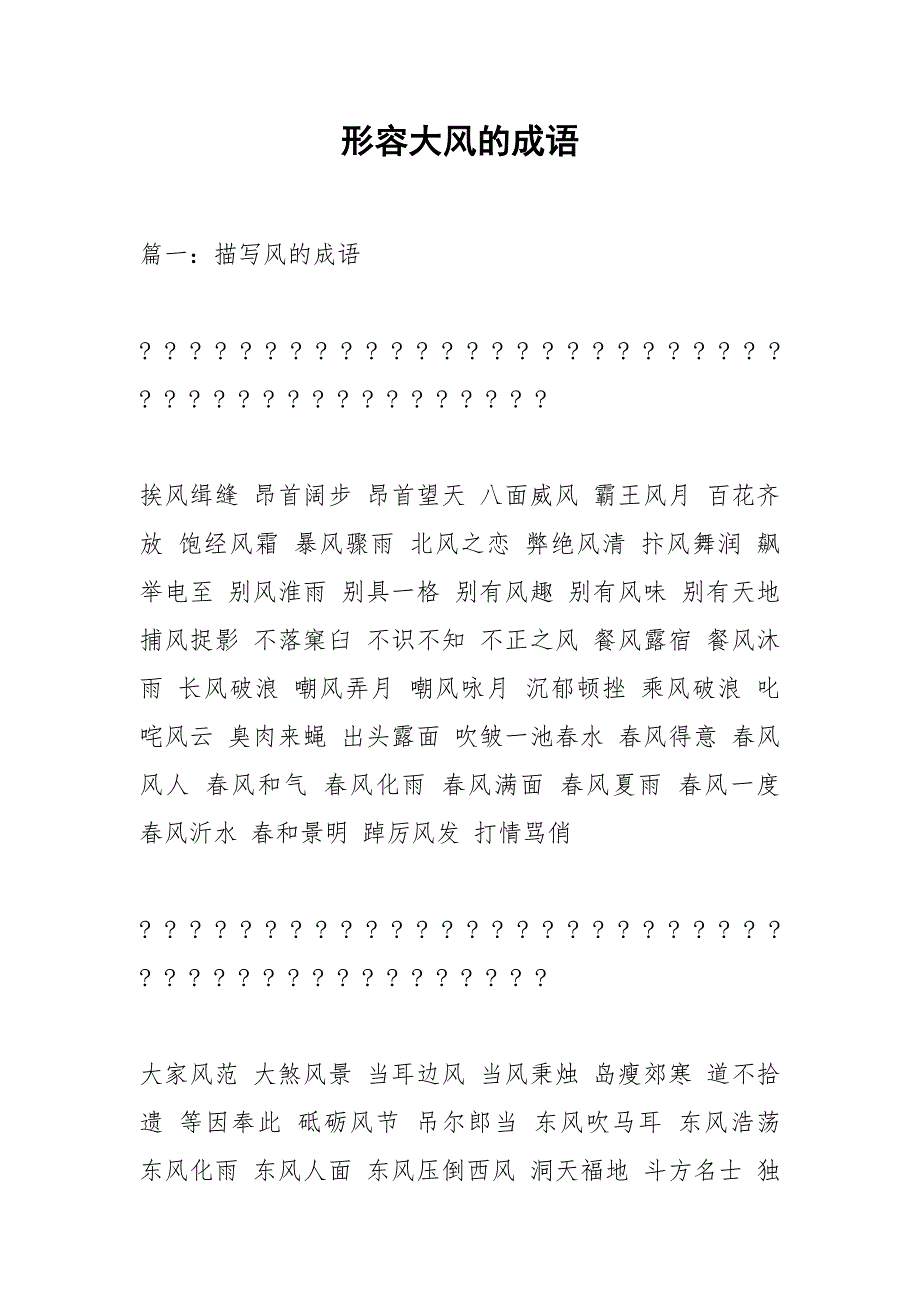 形容大风的成语
篇一：描写风的成语
? ? ? ? ? ? ? ? ? ? ? ? ? ? ? ? ? ? ? ? ? ? ? ? ? ?
? ? ? ? ? ? ? ? ? ? ? ? ? ? ? ? ?
挨风缉缝 昂首阔步 昂首望天 八面威风 霸王风月 百花齐
放 饱经风霜 暴风骤雨 北风之恋 弊绝风清 抃风舞润 飙
举电至 别风淮雨 别具一格 别有风趣 别有风味 别有天地
捕风捉影 不落窠臼 不识不知 不正之风 餐风露宿 餐风沐
雨 长风破浪 嘲风弄月 嘲风咏月 沉郁顿挫 乘风破浪 叱
咤风云 臭肉来蝇 出头露面 吹皱一池春水 春风得意 春风
风人 春风和气 春风化雨 春风满面 春风夏雨 春风一度
春风沂水 春和景明 踔厉风发 打情骂俏
? ? ? ? ? ? ? ? ? ? ? ? ? ? ? ? ? ? ? ? ? ? ? ? ? ?
? ? ? ? ? ? ? ? ? ? ? ? ? ? ? ? ?
大家风范 大煞风景 当耳边风 当风秉烛 岛瘦郊寒 道不拾
遗 等因奉此 砥砺风节 吊尔郎当 东风吹马耳 东风浩荡
东风化雨 东风人面 东风压倒西风 洞天福地 斗方名士 独